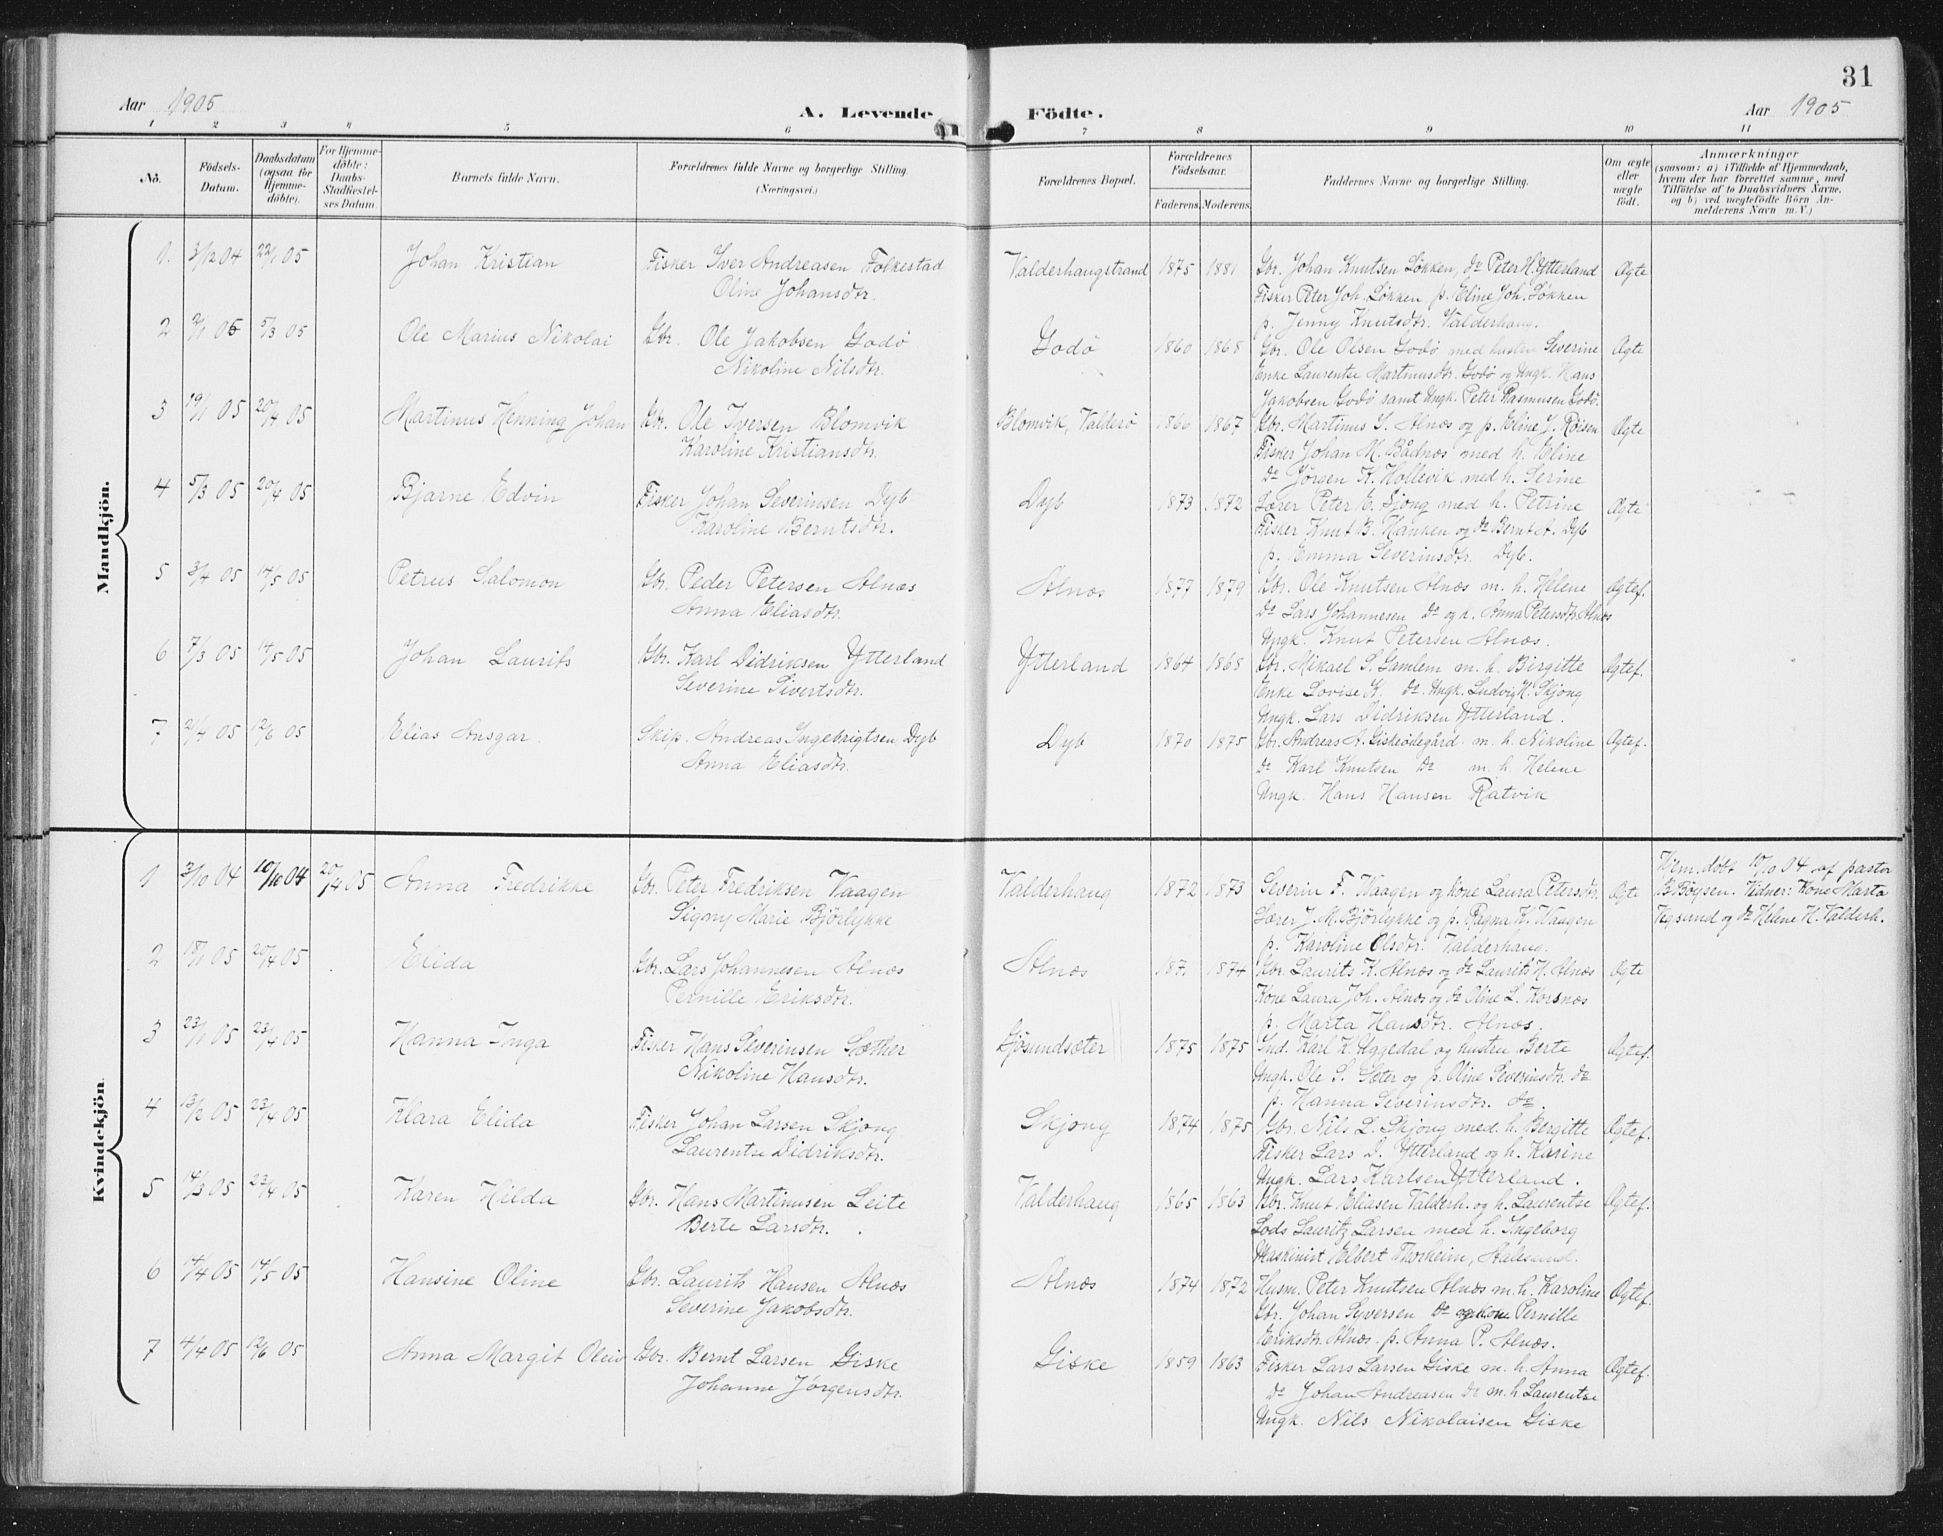 31
Aar 1905 A. Levende Födte. Aar 1905
1 2 3 4 5 6 7 8 9 10 11
No.
Födsels-Datum.
Daabsdatum (ogsaa for Hjemme-döbte).
For Hjemme-döbte: Daabs-Stadfæstel-ses Datum.
Barnets fulde Navn.
Forældrenes fulde Navne og borgerlige Stilling. (Næringsvei.)
Forældrenes Bopæl.
Forældrenes Födselsaar.
Faderens. Moderens.
Faddernes Navne og borgerlige Stilling.
Om ægte eller uægte födt.
Anmærkninger
(saasom: a) i Tilfælde af Hjemmedaab,
hvem der har forrettet samme, med
Tilföielse af to Daabsvidners Navne,
og b) ved uægtefödte Börn An-
melderens Navn m. V.)
Mandkjön.
1. 3/12 04 22/1 05 Johan Kristian Fisker Iver Andreasen Folkestad Valderhaugstrand 1875 1881 Gbr. Johan Knutsen Løkken, do Peter H. Ytterland Ægte
Oline Johansdtr. Fisker Peter Joh. Løkken p. Eline Joh. Løkken
p. Jenny Knutsdtr. Valderhaug.
2 2/1 05 5/3 05 Ole Marius Nikolai Gbr. Ole Jakobsen Godø Godø 1860 1868 Gbr. Ole Olsen Godø med hustru Severine Ægte
Nikoline Nilsdtr. Enke Laurentse Martinusdtr. Godø og Ungk. Hans
Jakobsen Godø samt Ungk. Peter Rasmussen Godø.
3 19/1 05 20/4 05 Martinus Henning Johan Gbr. Ole Iversen Blomvik Blomvik, Valderø 1866 1867 Gbr. Martinus S. Alnæs og p. Eline J. Røisen Ægte
Karoline Kristiansdtr. Fisker Johan M. Bådnæs med h. Eline
Do Jørgen K. Hollevik med h. Serine
4 5/3 05 20/4 05 Bjarne Edvin Fisker Johan Severinsen Dyb Dyb 1873 1872 Lærer Peter E. Sjong med h. Petrine Ægte
Karoline Berntsdtr. Fisker Knut B. Hanken og do Bernt A. Dyb
p. Emma Severinsdtr. Dyb.
5 3/4 05 14/5 05 Petrus Salomon Gbr. Peder Petersen Alnæs Alnæs 1877 1879 Gbr. Ole Knutsen Alnæs m. h. Helene Ægtef.
Anna Eliasdtr. Do Lars Johannesen do og h. Anna Petersdtr. Alnæs
Ungk. Knut Petersen Alnæs.
6 7/3 05 14/5 05 Johan Laurits Gbr. Karl Didriksen Ytterland Ytterland 1864 1868 Gbr. Mikael S. Gamlem m. h. Birgitte Ægtef.
Severine Sivertsdtr. Enke Lovise K. do. Ungk. Ludvig N. Skjong
Ungk. Lars Didriksen Ytterland.
7 21/4 05 12/6 05 Elias Ansgar. Skip. Andreas Ingebrigtsen Dyb Dyb 1870 1875 Gbr. Andreas A. Giskeødegård m. h. Nikoline Ægtef.
Anna Eliasdtr. Do Karl Knutsen do m. h. Helene
Ungk. Hans Hansen Ratvik
Kvindekjön.
1 3/10 04 10/10 04 20/4 05 Anna Fredrikke Gbr. Peter Fredriksen Vaagen Valderhaug 1872 1873 Severin F. Waagen og kone Laura Petersdtr. Ægte Hjem.døbt 10/10 04 af pastor
Signy Marie Bjørlykke Lærer J. M. Bjørlykke og p. Ragna K. Waagen B. Bøysen. Vidner: Kone Marta
p. Karoline Olsdtr. Valderhaug. Vegsund og do Helene H. Valderh.
2 18/1 05 20/4 05 Elida Gbr. Lars Johannesen Alnæs Alnæs 187. 1874 Gbr. Laurits K. Alnæs og do Laurits H. Alnæs Ægte
Pernille Eriksdtr. Kone Laura Joh. Alnæs og do Oline L. Korsnæs
p. Marta Hansdtr. Alnæs.
3 23/1 05 23/4 05 Hanna Inga Fisker Hans Severinsen Sæther Gjøsundsæter 1875 1875 Ind. Karl K. Aggedal og hustru Berte Ægtef.
Nikoline Hansdtr. Ungk. Ole S. Sæter og p. Oline Severinsdtr. do
p. Hanna Severinsdtr. do.
4 13/2 05 23/4 05 Klara Elida Fisker Johan Larsen Skjong Skjong 1874 1875 Gbr. Nils L. Skjong med h. Bergitte Ægtef.
Laurentse Didriksdtr. Fisker Lars D. Ytterland og h. Karine
Ungk. Lars Karlsen Ytterland.
5 14/3 05 23/4 05 Karen Hilda Gbr. Hans Martinusen Leite Valderhaug 1865 1863 Gbr. Knut Eliasen Valderh. og h. Laurentse Ægtef.
Berte Larsdtr. Lods Lauritz Larsen med h. Ingeborg
Maskinist Elbert Thorheim, Aalesund.
6 14/4 05 14/5 05 Hansine Oline Gbr. Laurits Hansen Alnæs Alnæs 1874 1872 Husm. Peter Knutsen Alnæs m. h. Karoline Ægtef.
Severine Jakobsdtr. Gbr. Johan Syversen do og kone Pernille
Eriksdtr. Alnæs. p. Anna P. Alnæs.
7 4/4 05 12/6 05 Anna Margit Oleiv Gbr. Bernt Larsen Giske Giske 1859 1863 Fisker Lars Larsen Giske m. h. Anna Ægtef.
Johanne Jørgensdtr. do Johan Andreasen do m. h. Laurentse
Ungk. Nils Nikolaisen Giske